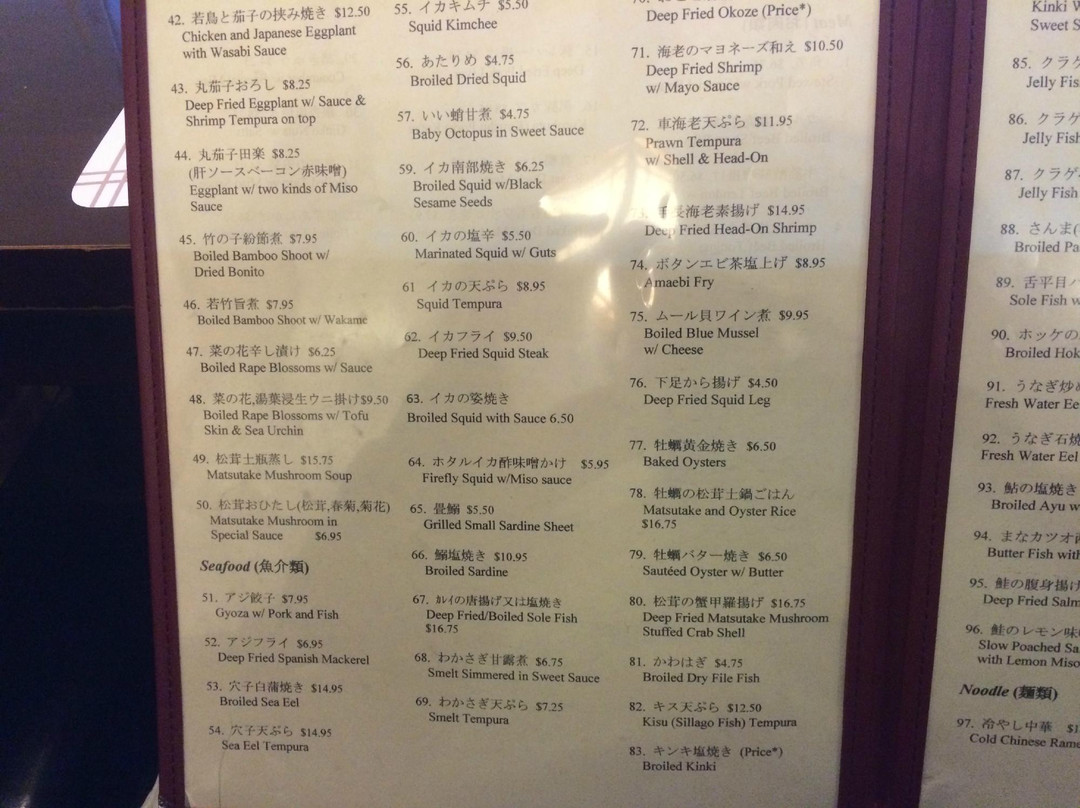 42. 若鳥と茄子の挟み焼き $12.50
Chicken and Japanese Eggplant
with Wasabi Sauce
43. 丸茄子おろし $8.25
Deep Fried Eggplant w/ Sauce &
Shrimp Tempura on top
44. 丸茄子田楽 $8.25
(肝ソースベーコン赤味噌)
Eggplant w/ two kinds of Miso
Sauce
45. 竹の子粉節煮 $7.95
Boiled Bamboo Shoot w/
Dried Bonito
46. 若竹旨煮 $7.95
Boiled Bamboo Shoot w/ Wakame
47. 菜の花辛し漬け $6.25
Boiled Rape Blossoms w/ Sauce
48. 菜の花,湯葉浸生ウニ掛け$9.50
Boiled Rape Blossoms w/ Tofu
Skin & Sea Urchin
49. 松茸土瓶蒸し $15.75
Matsutake Mushroom Soup
50. 松茸おひたし(松茸,春菊,菊花)
Matsutake Mushroom in
Special Sauce $6.95
Seafood (魚介類)
51. アジ餃子 $7.95
Gyoza w/ Pork and Fish
52. アジフライ $6.95
Deep Fried Spanish Mackerel
53. 穴子白蒲焼き $14.95
Broiled Sea Eel
54. 穴子天ぷら $14.95
Sea Eel Tempura
55. イカキムチ $5.50
Squid Kimchee
56. あたりめ $4.75
Broiled Dried Squid
57. いい蛸甘煮 $4.75
Baby Octopus in Sweet Sauce
59. イカ南部焼き $6.25
Broiled Squid w/Black
Sesame Seeds
60. イカの塩辛 $5.50
Marinated Squid w/ Guts
61 イカの天ぷら $8.95
Squid Tempura
62. イカフライ $9.50
Deep Fried Squid Steak
63. イカの姿焼き
Broiled Squid with Sauce 6.50
64. ホタルイカ酢味噌かけ $5.95
Firefly Squid w/Miso sauce
65. 畳鰯 $5.50
Grilled Small Sardine Sheet
66. 鰯塩焼き $10.95
Broiled Sardine
67. ｶﾚｲの唐揚げ又は塩焼き
Deep Fried/Boiled Sole Fish
$16.75
68. わかさぎ甘露煮 $6.75
Smelt Simmered in Sweet Sauce
69. わかさぎ天ぷら $7.25
Smelt Tempura
Deep Fried Okoze (Price*)
71. 海老のマヨネーズ和え $10.50
Deep Fried Shrimp
w/ Mayo Sauce
72. 車海老天ぷら $11.95
Prawn Tempura
w/ Shell & Head-On
手長海老素揚げ $14.95
Deep Fried Head-On Shrimp
74. ボタンエビ茶塩上げ $8.95
Amaebi Fry
75. ムール貝ワイン煮 $9.95
Boiled Blue Mussel
w/ Cheese
76. 下足から揚げ $4.50
Deep Fried Squid Leg
77. 牡蠣黄金焼き $6.50
Baked Oysters
78. 牡蠣の松茸土鍋ごはん
Matsutake and Oyster Rice
$16.75
79. 牡蠣バター焼き $6.50
Sautéed Oyster w/ Butter
80. 松茸の蟹甲羅揚げ $16.75
Deep Fried Matsutake Mushroom
Stuffed Crab Shell
81. かわはぎ $4.75
Broiled Dry File Fish
82. キス天ぷら $12.50
Kisu (Sillago Fish) Tempura
83. キンキ塩焼き (Price*)
Broiled Kinki
Kinki
Sweet
85. クラゲ
Jelly
86. クラゲ
Jelly Fish
87. クラゲ
Jelly Fish
88. さんま
Broiled
89. 舌平目
Sole Fish
90. ホッケの
Broiled
91. うなぎ炒め
Fresh Water
92. うなぎ石焼
Fresh Water Eel
93. 鮎の塩焼き
Broiled Ayu
94. まなカツオ
Butter Fish with
95. 鮭の腹身揚げ
Deep Fried
96. 鮭のレモン味
Slow Poached
with Lemon Miso
Noodle (麺類)
97. 冷やし中華
Cold Chinese